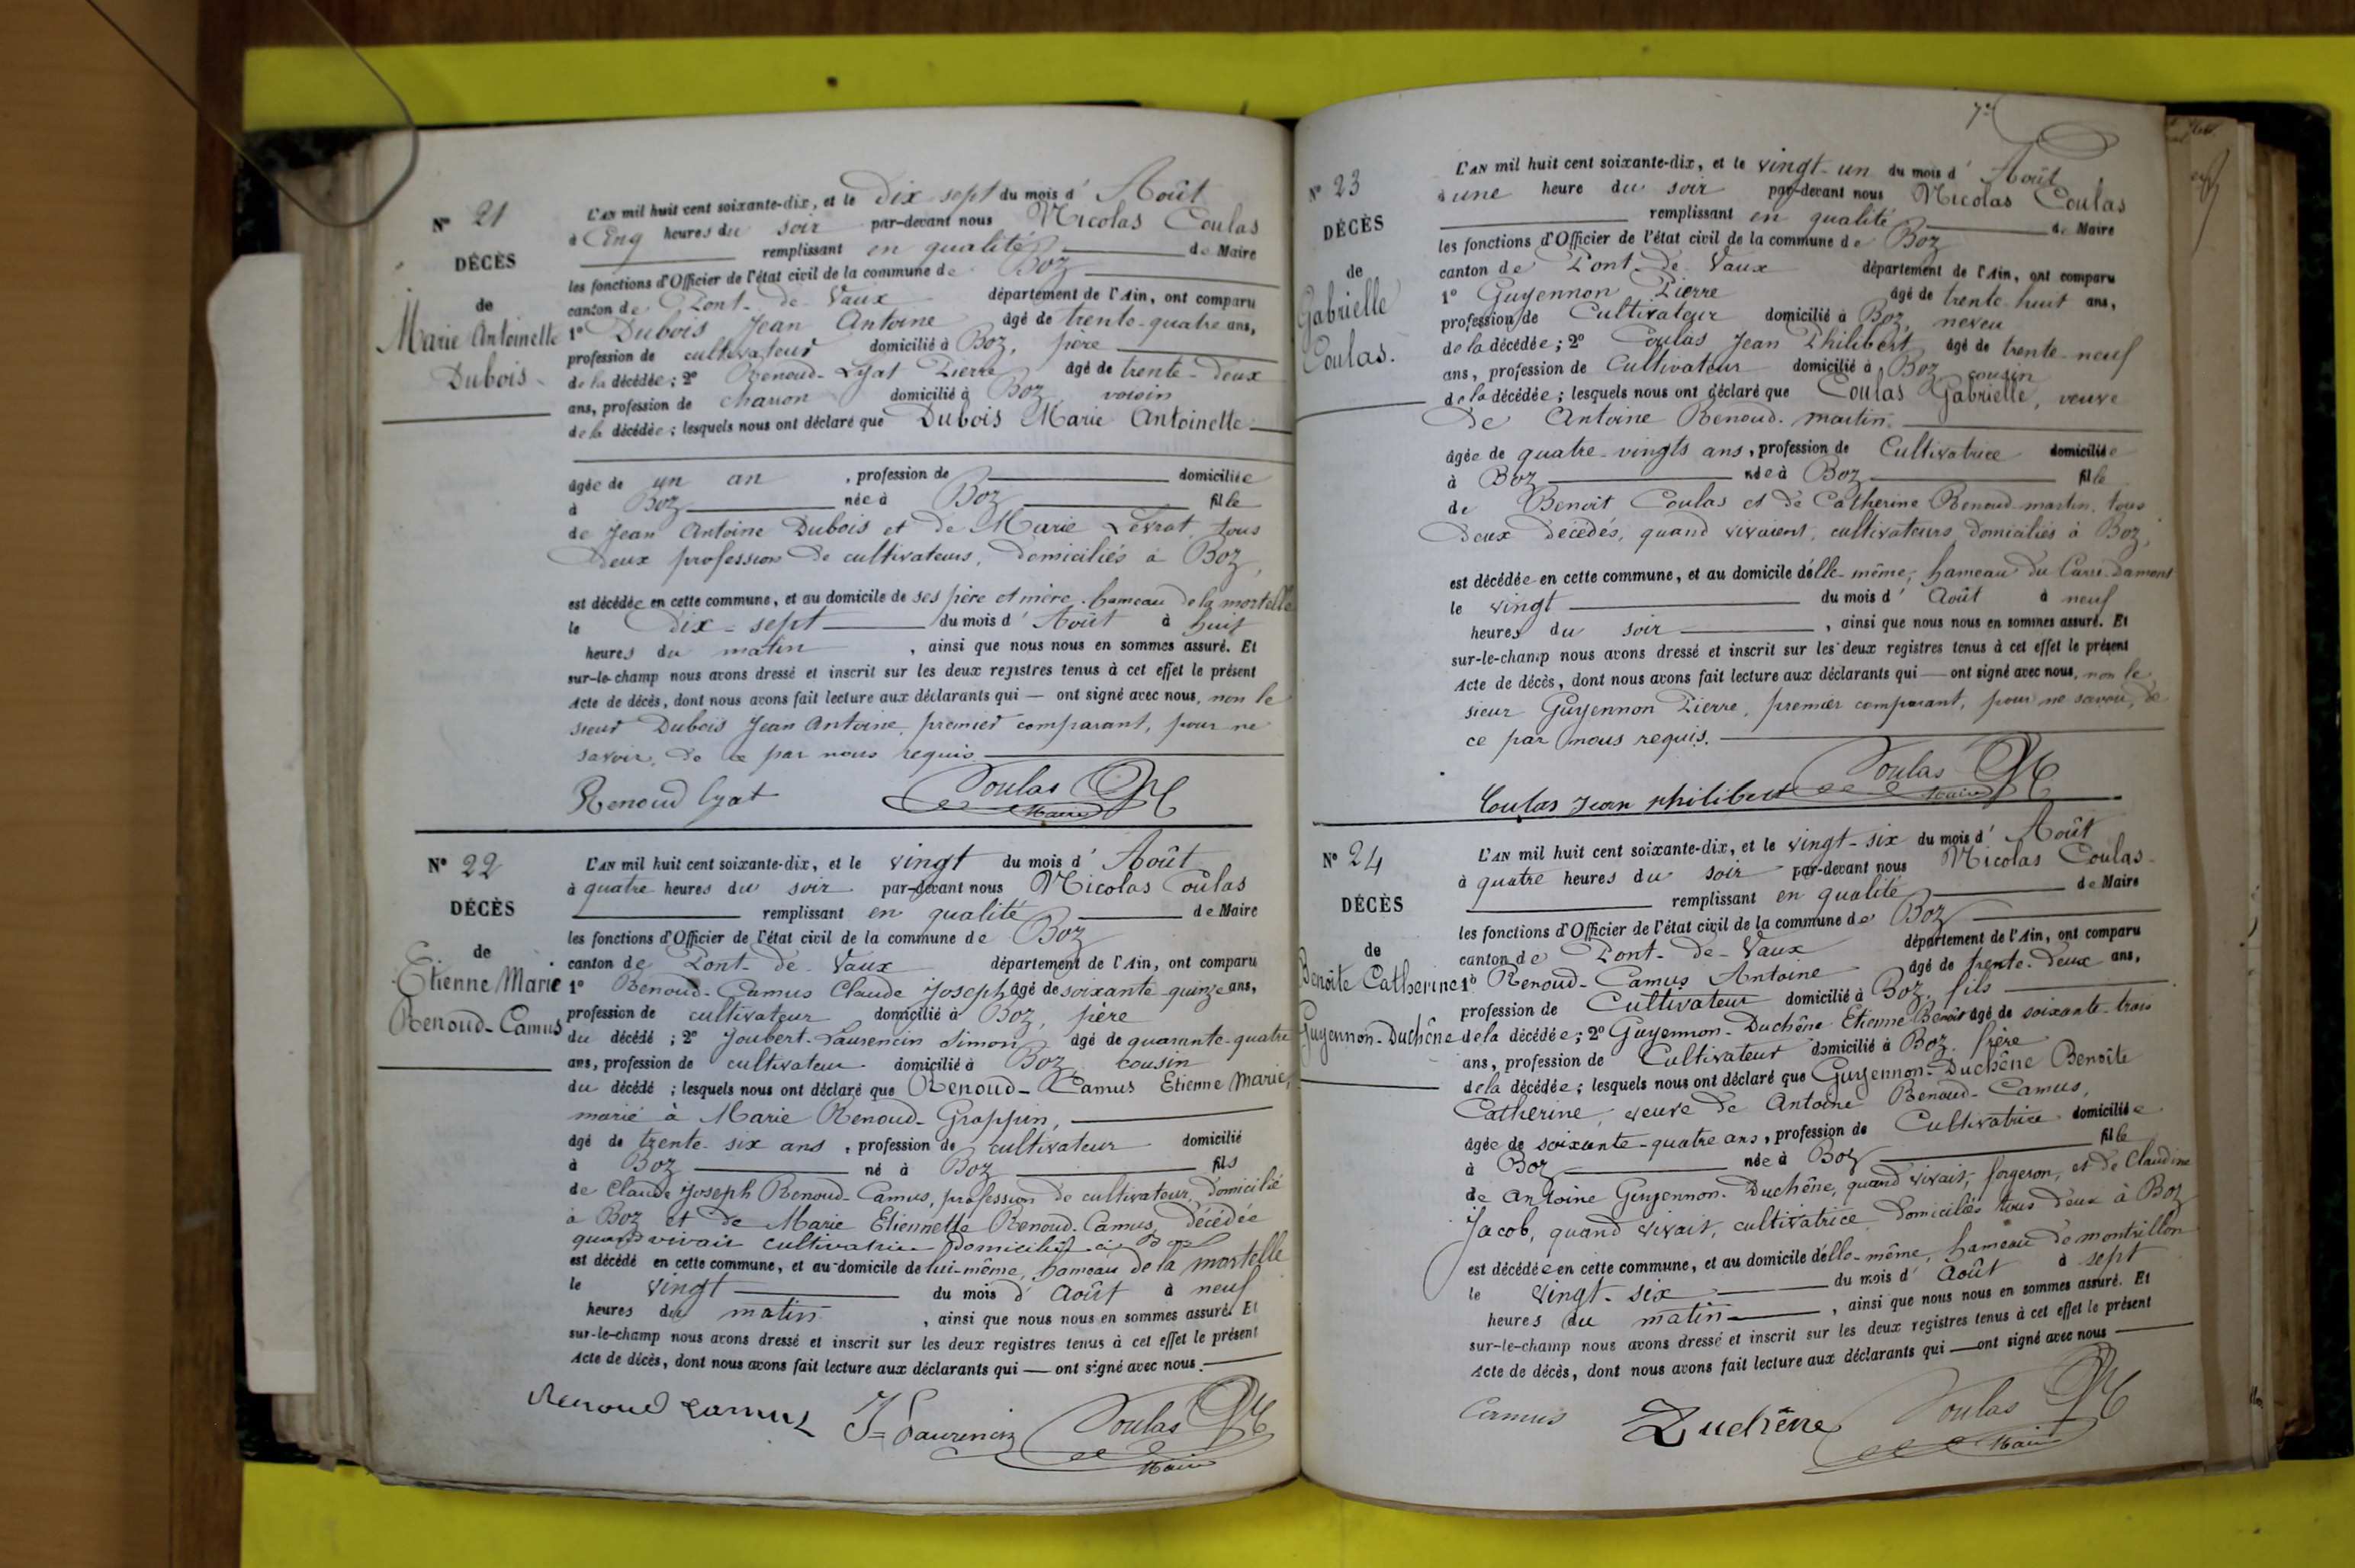 N° 21
DÉCÈS
de
Marie Antoinette
Dubois
L'AN mil huit cent soixante-dix, et le Dix sept du mois d' Août
à Cinq heures du soir par-devant nous Nicolas Coulas
remplissant en qualité de Maire
les fonctions d'Officier de l'état civil de la commune de Boz
canton de Pont-de-Vaux département de l'Ain, ont comparu
1° Dubois Jean Antoine âgé de trente-quatre ans,
profession de cultivateur domicilié à Boz, père
de la décédée ; 2° Renoud-Lyat Pierre âgé de trente-deux
ans, profession de charron domicilié à Boz, voisin
de la décédée ; lesquels nous ont déclaré que Dubois Marie Antoinette
âgée de un an , profession de domiciliée
à Boz née à Boz fille
de Jean Antoine Dubois et de Marie Levrat, tous
deux profession de cultivateurs, domiciliés à Boz,
est décédée en cette commune, et au domicile de ses père et mère, hameau de la mortelle
le dix-sept du mois d' Août à huit
heures du matin , ainsi que nous nous en sommes assuré. Et
sur-le-champ nous avons dressé et inscrit sur les deux registres tenus à cet effet le présent
Acte de décès, dont nous avons fait lecture aux déclarants qui — ont signé avec nous, non le
sieur Dubois Jean Antoine, premier comparant, pour ne
savoir, de ce par nous requis.
Renoud lyat Coulas
Maire
N° 22
DÉCÈS
de
Etienne Marie
Renoud-Camus
L'AN mil huit cent soixante-dix, et le vingt du mois d' Août
à quatre heures du soir par-devant nous Nicolas Coulas
remplissant en qualité de Maire
les fonctions d'Officier de l'état civil de la commune de Boz
canton de Pont-de-Vaux département de l'Ain, ont comparu
1° Renoud-Camus Claude Joseph âgé de soixante quinze ans,
profession de cultivateur domicilié à Boz, père
du décédé ; 2° Joubert-Laurencin Simon âgé de quarante-quatre
ans, profession de cultivateur domicilié à Boz, cousin
du décédé ; lesquels nous ont déclaré que Renoud-Camus Etienne Marie,
marié à Marie Renoud-Grappin,
âgé de trente-six ans , profession de cultivateur domicilié
à Boz né à Boz fils
de Claude Joseph Renoud-Camus, profession de cultivateur, domicilié
à Boz et de Marie Etiennette Renoud-Camus, décédée
quand vivait cultivatrice domiciliée à Boz
est décédé en cette commune, et au domicile de lui-même, hameau de la mortelle
le vingt du mois d' Août à neuf
heures du matin , ainsi que nous nous en sommes assuré. Et
sur-le-champ nous avons dressé et inscrit sur les deux registres tenus à cet effet le présent
Acte de décès, dont nous avons fait lecture aux déclarants qui — ont signé avec nous.
Renoud Camus J= Laurencin Coulas
Maire
N° 23
DÉCÈS
de
Gabrielle
Coulas.
L'AN mil huit cent soixante-dix, et le vingt-un du mois d' Août
à une heure du soir par-devant nous Nicolas Coulas
remplissant en qualité de Maire
les fonctions d'Officier de l'état civil de la commune de Boz
canton de Pont-de-Vaux département de l'Ain, ont comparu
1° Guyennon Pierre âgé de trente-huit ans,
profession de Cultivateur domicilié à Boz, neveu
de la décédée ; 2° Coulas Jean Philibert âgé de trente-neuf
ans, profession de Cultivateur domicilié à Boz cousin
de la décédée ; lesquels nous ont déclaré que Coulas Gabrielle, veuve
de Antoine Renoud-martin.
âgée de quatre-vingts ans, profession de Cultivatrice domiciliée
à Boz née à Boz fille
de Benoit Coulas et de Catherine Renoud-martin, tous
deux décédés, quand vivaient, cultivateurs, domiciliés à Boz,
est décédée en cette commune, et au domicile d'elle-même, hameau du Carre-Dament
le vingt du mois d' Août à neuf
heures du soir , ainsi que nous nous en sommes assuré. Et
sur-le-champ nous avons dressé et inscrit sur les deux registres tenus à cet effet le présent
Acte de décès, dont nous avons fait lecture aux déclarants qui — ont signé avec nous, non le
sieur Guyennon Pierre, premier comparant, pour ne savoir, de
ce par nous requis.
Coulas Jean philibert Coulas
Maire
N° 24
DÉCÈS
de
Benoîte Catherine
Guyennon-Duchêne
L'AN mil huit cent soixante-dix, et le vingt-six du mois d' Août
à quatre heures du soir par-devant nous Nicolas Coulas
remplissant en qualité de Maire
les fonctions d'Officier de l'état civil de la commune de Boz
canton de Pont-de-Vaux département de l'Ain, ont comparu
1° Renoud-Camus Antoine âgé de trente-deux ans,
profession de Cultivateur domicilié à Boz, fils
de la décédée ; 2° Guyennon-Duchêne Etienne Benoit âgé de soixante-trois
ans, profession de Cultivateur domicilié à Boz, frère
de la décédée ; lesquels nous ont déclaré que Guyennon-Duchêne Benoîte
Catherine, veuve de Antoine Renoud-Camus,
âgée de soixante-quatre ans, profession de Cultivatrice domiciliée
à Boz née à Boz fille
de Antoine Guyennon-Duchêne, quand vivait, forgeron, et de Claudine
Jacob, quand vivait, cultivatrice, domiciliés tous deux à Boz
est décédée en cette commune, et au domicile d'elle-même, hameau de montrillon
le vingt-six du mois d' Août à sept
heures du matin , ainsi que nous nous en sommes assuré. Et
sur-le-champ nous avons dressé et inscrit sur les deux registres tenus à cet effet le présent
Acte de décès, dont nous avons fait lecture aux déclarants qui — ont signé avec nous
Camus Duchêne Coulas
Maire